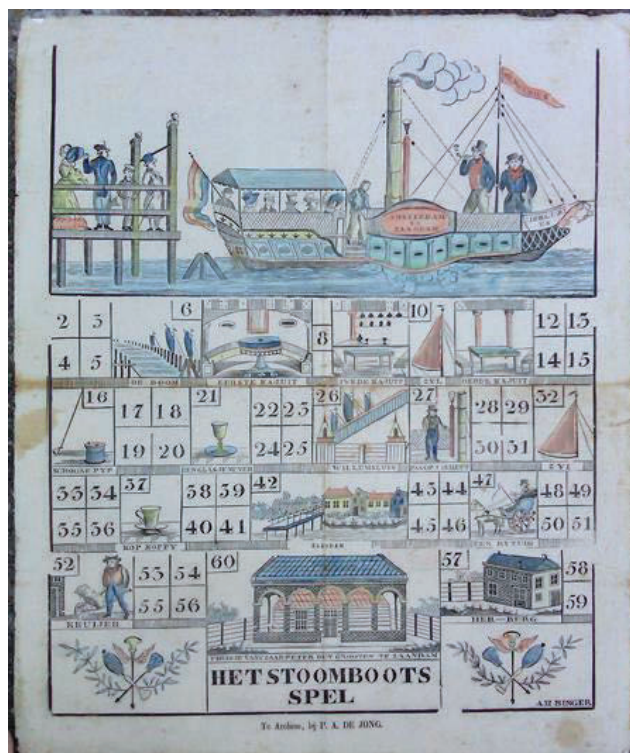 AMSTERDAM
EN
ZAANDAM
2 3 6 8 10 12 13
4 5 14 15
DE BOOM EERSTE KAJUIT ZYL
16 17 18 21 22 23 26 27 28 29 32
19 20 24 25 30 31
EEN GLAASJE WILLEMSLUIS ZYL
33 34 37 38 39 42 43 44 47 48 49
35 36 40 41 45 46 50 51
KOP KOFFY ZAANDAM
52 53 54 60 57 58
55 56 59
KRUIJER HER-BERG
TE ZAANDAM
HET STOOMBOOTS
SPEL
A H BINGER
Te Arnhem, bij P. A. DE JONG.